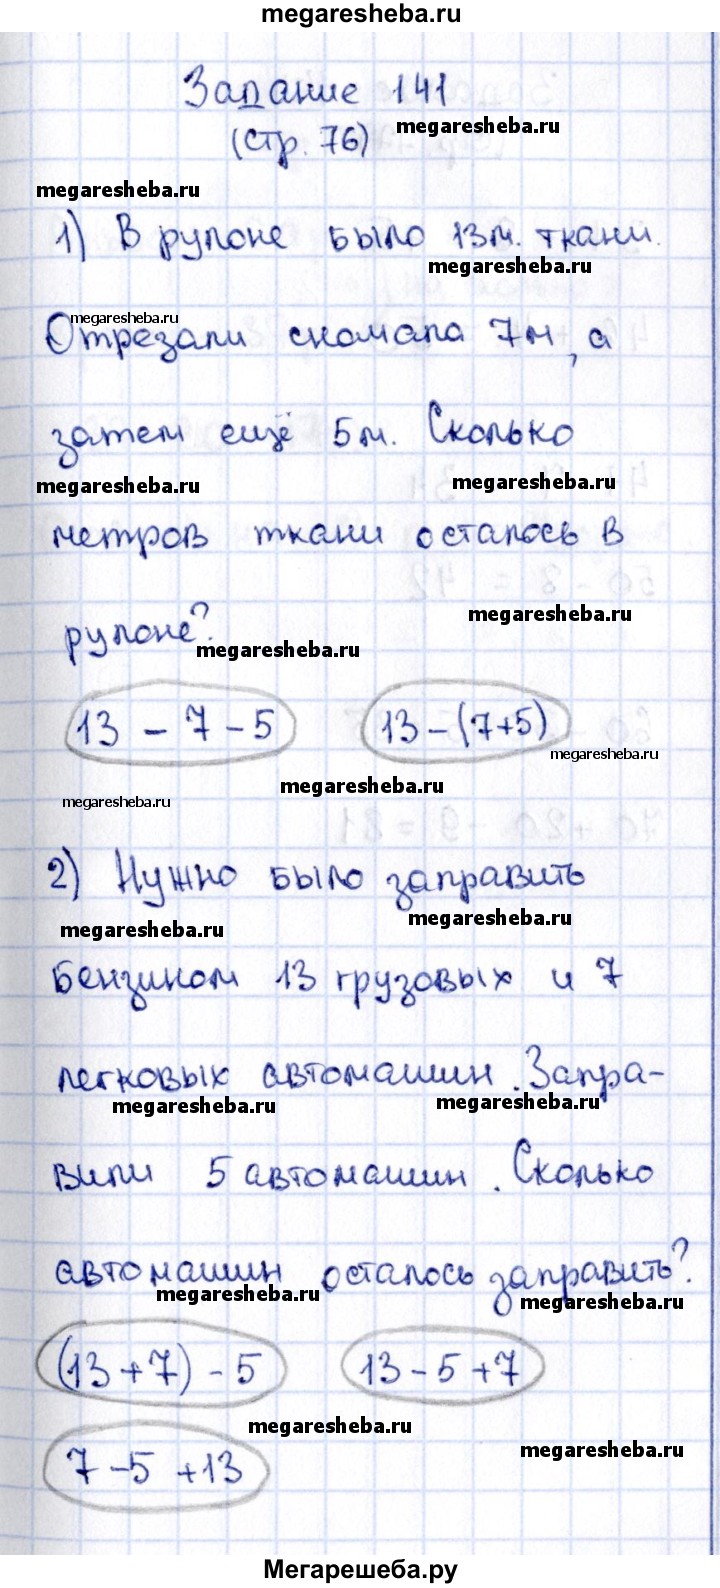 megaresheba.ru
Задание 141
megaresheba.ru
(стр. 76)
megaresheba.ru
1) В рулоне было 13м. ткани.
megaresheba.ru
megaresheba.ru
Отрезали сномала 7м, а
затем ещё 5м. Сколько
megaresheba.ru
megaresheba.ru
метров ткани осталось в
megaresheba.ru
рулоне?
megaresheba.ru
13 - 7 - 5 13 - (7+5)
megaresheba.ru
megaresheba.ru
megaresheba.ru
2) Нужно было заправить
megaresheba.ru
megaresheba.ru
бензином 13 грузовых и 7
легковых автомашин. Запра-
megaresheba.ru
megaresheba.ru
вили 5 автомашин. Сколько
автомашин осталось заправить?
megaresheba.ru
megaresheba.ru
(13 + 7) - 5 13 - 5 + 7
megaresheba.ru
megaresheba.ru
7 - 5 + 13
Мегарешеба.ру